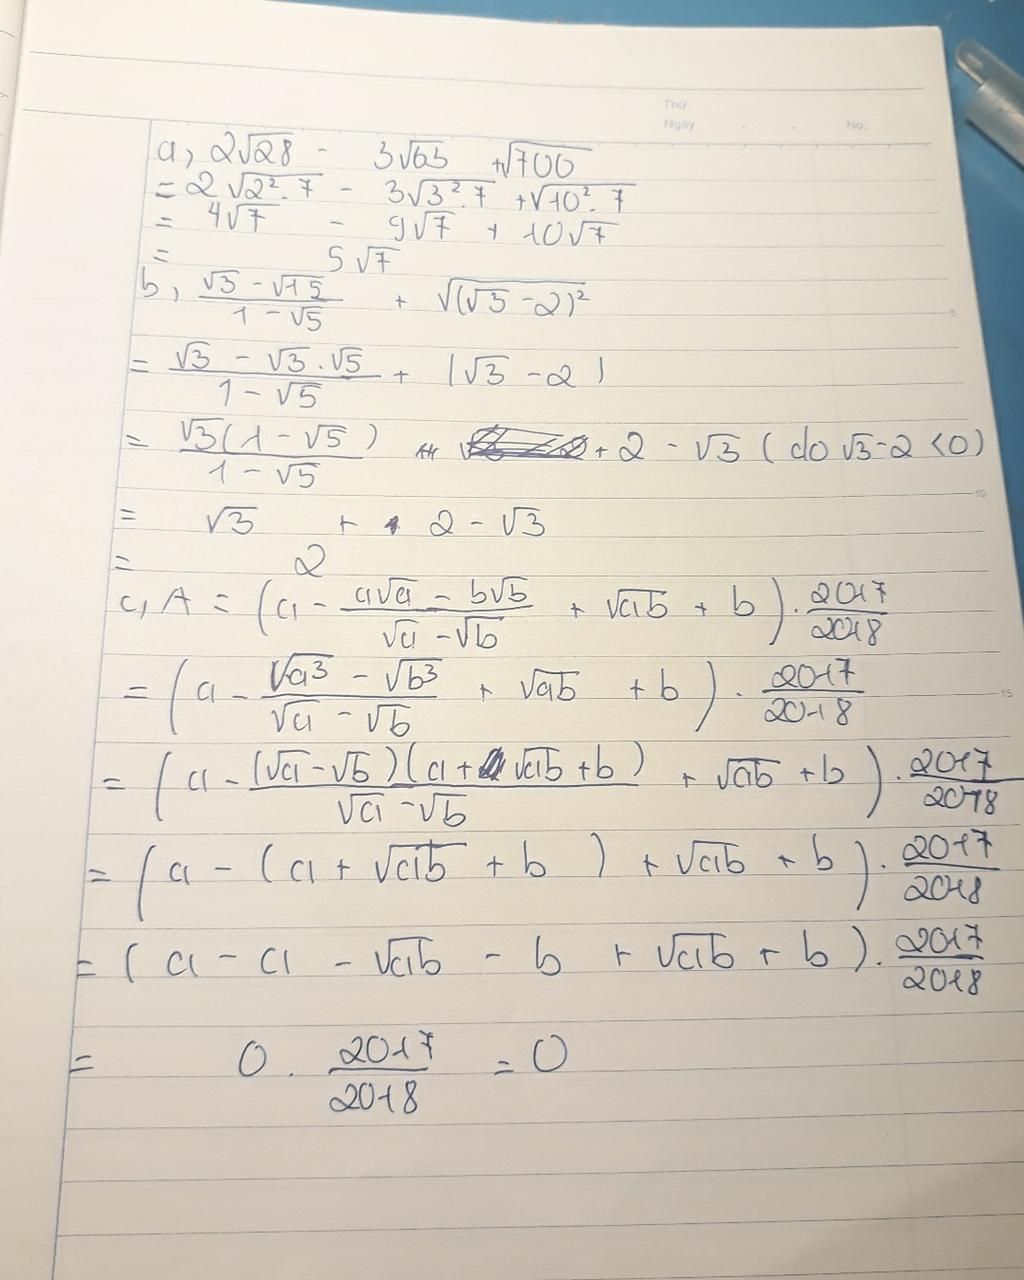 Thứ
Ngày . . No.
a, 2√28 - 3√63 + √700
= 2√(2².7) - 3√(3².7) + √(10².7)
= 4√7 - 9√7 + 10√7
= 5√7
b, (√3 - √15)/(1 - √5) + √((√3 - 2)²)
= (√3 - √3.√5)/(1 - √5) + |√3 - 2|
= √3(1 - √5)/(1 - √5) + 2 - √3 (do √3 - 2 < 0)
= √3 + 2 - √3
= 2
c, A = (a - (a√a - b√b)/(√a - √b) + √ab + b) . 2017/2018
= (a - (√a³ - √b³)/(√a - √b) + √ab + b) . 2017/2018
= (a - (√a - √b)(a + √ab + b)/(√a - √b) + √ab + b) . 2017/2018
= (a - (a + √ab + b) + √ab + b) . 2017/2018
= (a - a - √ab - b + √ab + b) . 2017/2018
= 0 . 2017/2018 = 0
5
10
15